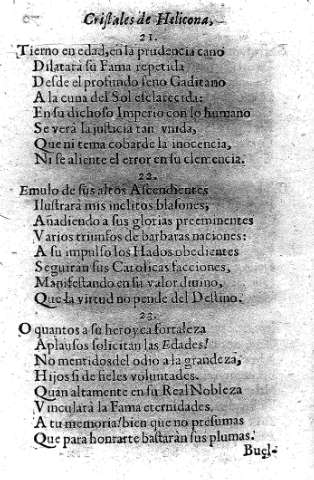 Cristales de Helicona,
21.
Tierno en edad, en la prudencia cano
Dilatará su Fama repetida
Desde el profundo seno Gaditano
A la cuna del Sol esclarecida:
En su dichoso Imperio con lo humano
Se verá la justicia tan vnida,
Que ni tema cobarde la inocencia,
Ni se aliente el error en su clemencia.
22.
Emulo de sus altos Ascendientes
Ilustrará mis inclitos blasones,
Añadiendo a sus glorias preeminentes
Varios triunfos de barbaras naciones:
A su impulso los Hados obedientes
Seguiràn sus Catolicas facciones,
Manifestando en su valor diuino,
Que la virtud no pende del Destino.
23.
O quantos a su heroyca fortaleza
Aplausos solicitan las Edades!
No mentidos del odio a la grandeza,
Hijos si de fieles voluntades.
Quan altamente en su Real Nobleza
Vinculará la Fama eternidades.
A tu memoria! bien que no presumas
Que para honrarte bastarán sus plumas.
Buel-